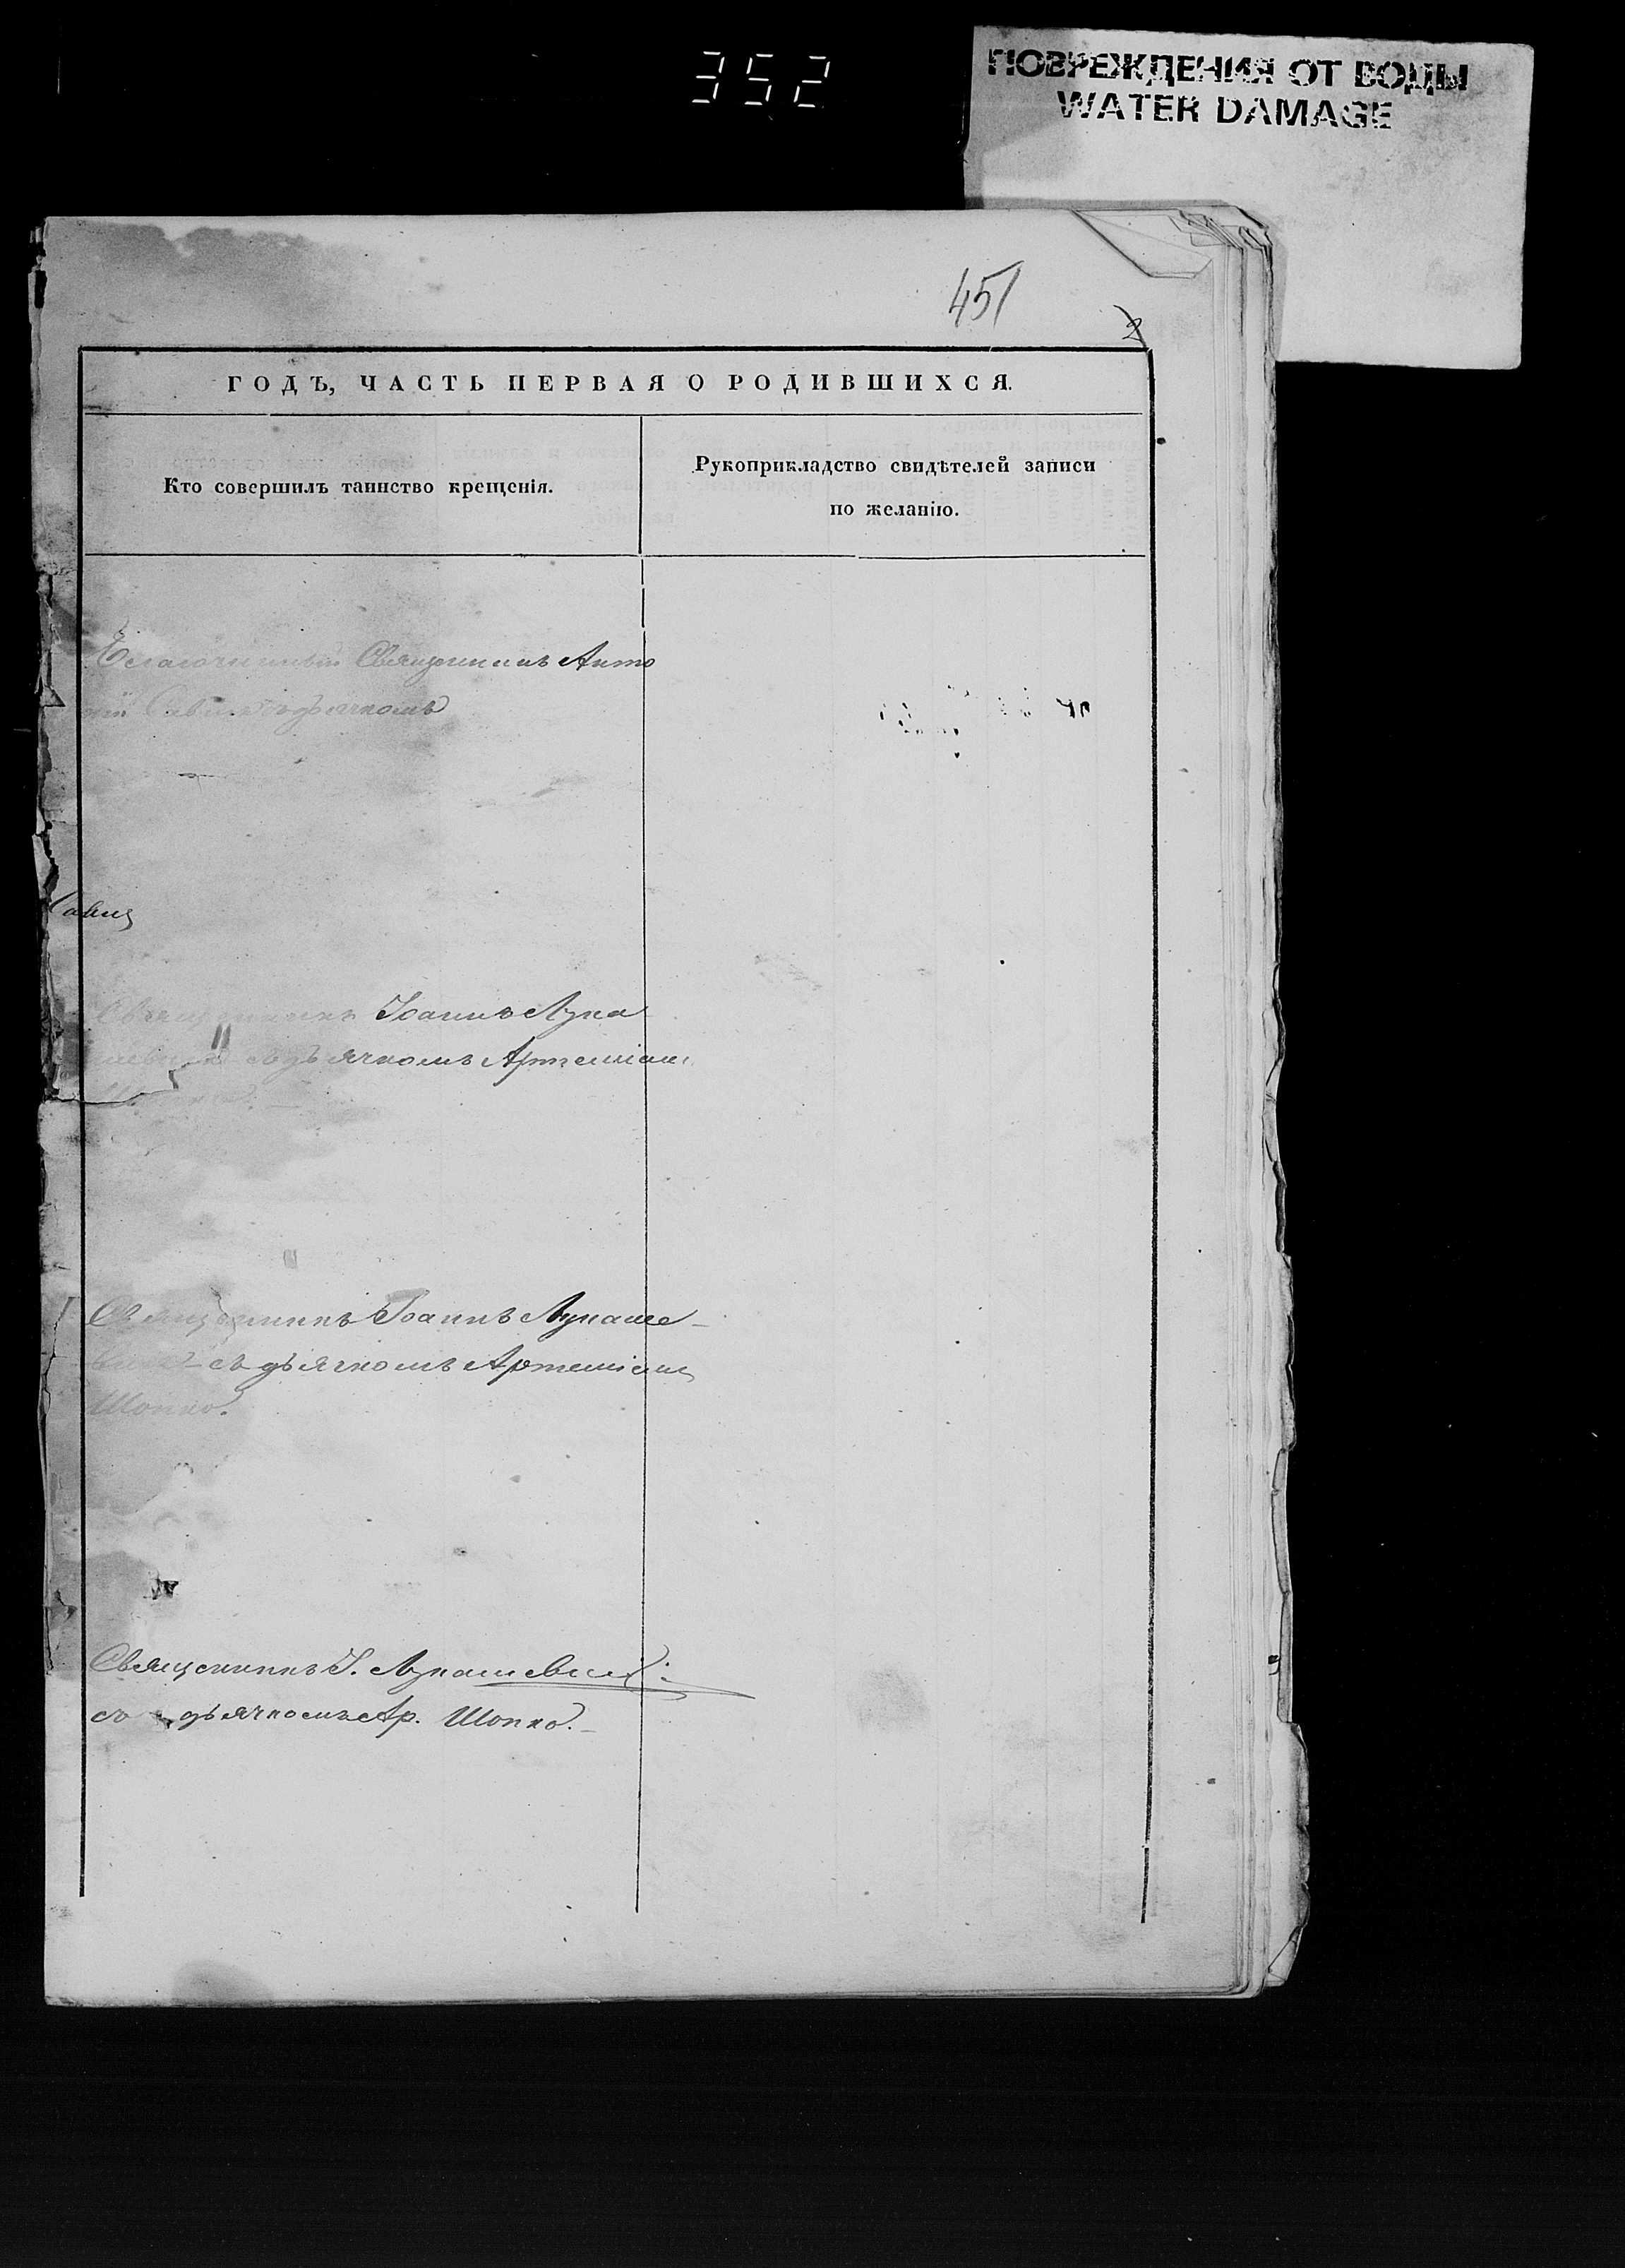 352
ПОВРЕЖДЕНИЯ ОТ ВОДЫ
WATER DAMAGE
451
2
ГОДЪ, ЧАСТЬ ПЕРВАЯ О РОДИВШИХСЯ.
Кто совершилъ таинство крещенія.
Рукоприкладство свидѣтелей записи
по желанію.
Благочинный Священникъ Анто
ній съ дьячкомъ
Священникъ Іоаннъ Лука
съ дьячкомъ Артеміемъ
Священникъ Іоаннъ Лукаше-
вичъ съ дьячкомъ Артеміемъ
Шопко.
Священникъ І. Лукашевичъ
съ дьячкомъ Ар. Шопко.